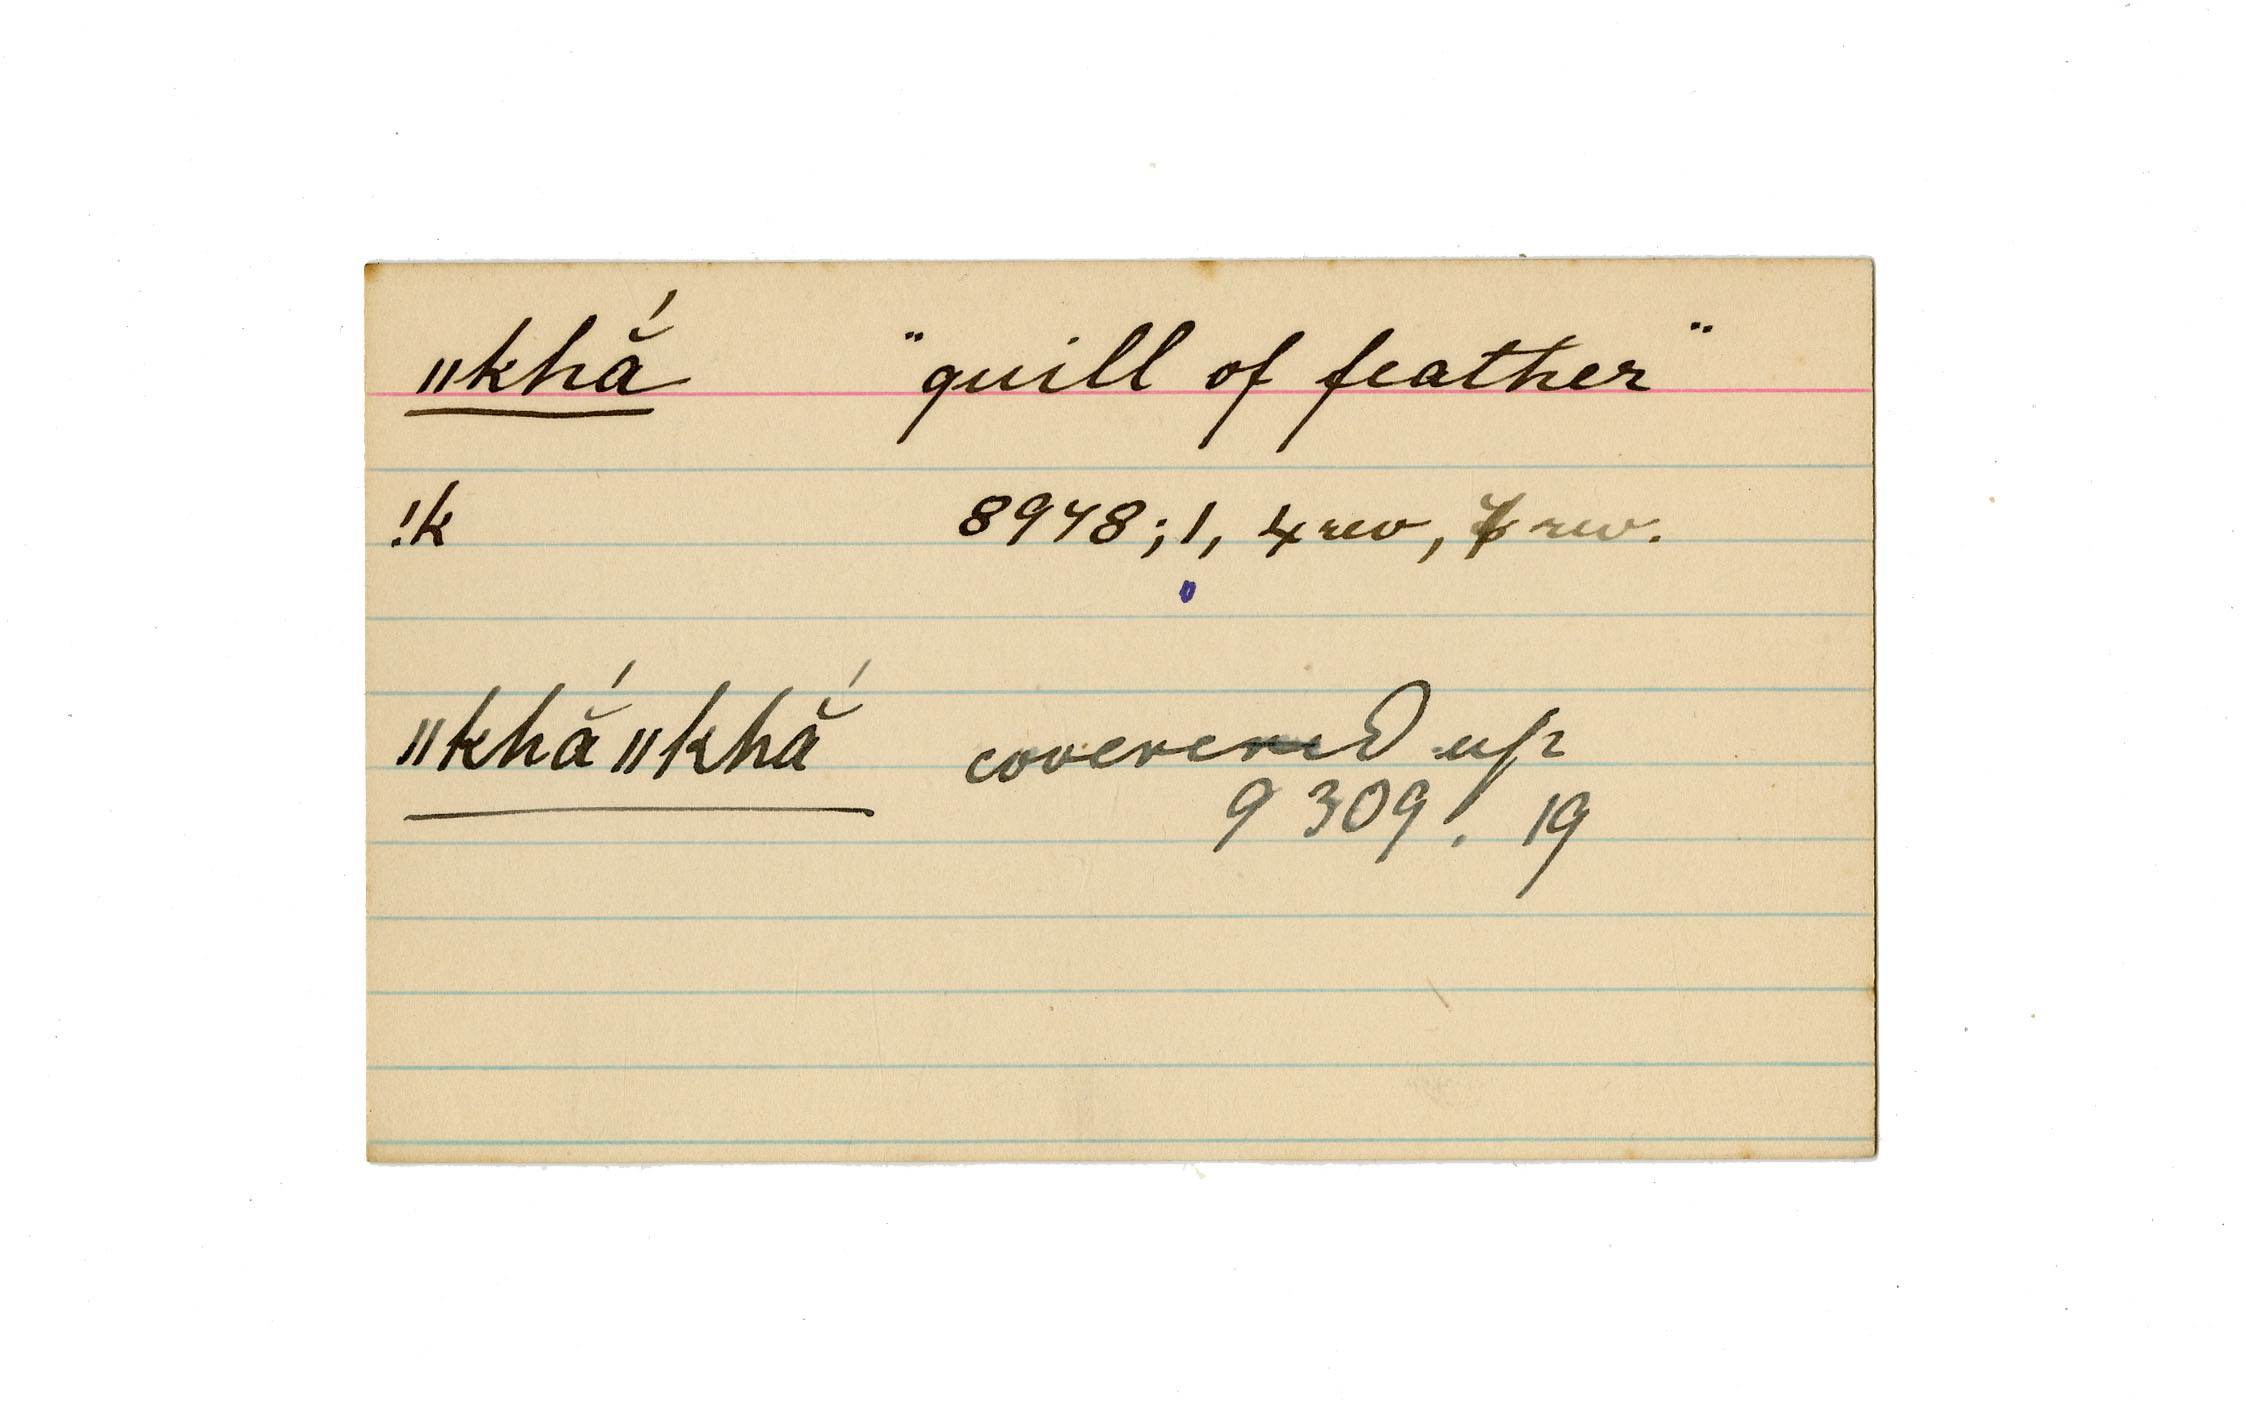 ǁkhắ "quill of feather"
!k 8948; 1, 4 rev, rev.
ǁkhắǁkhắ covered up
9309. 19